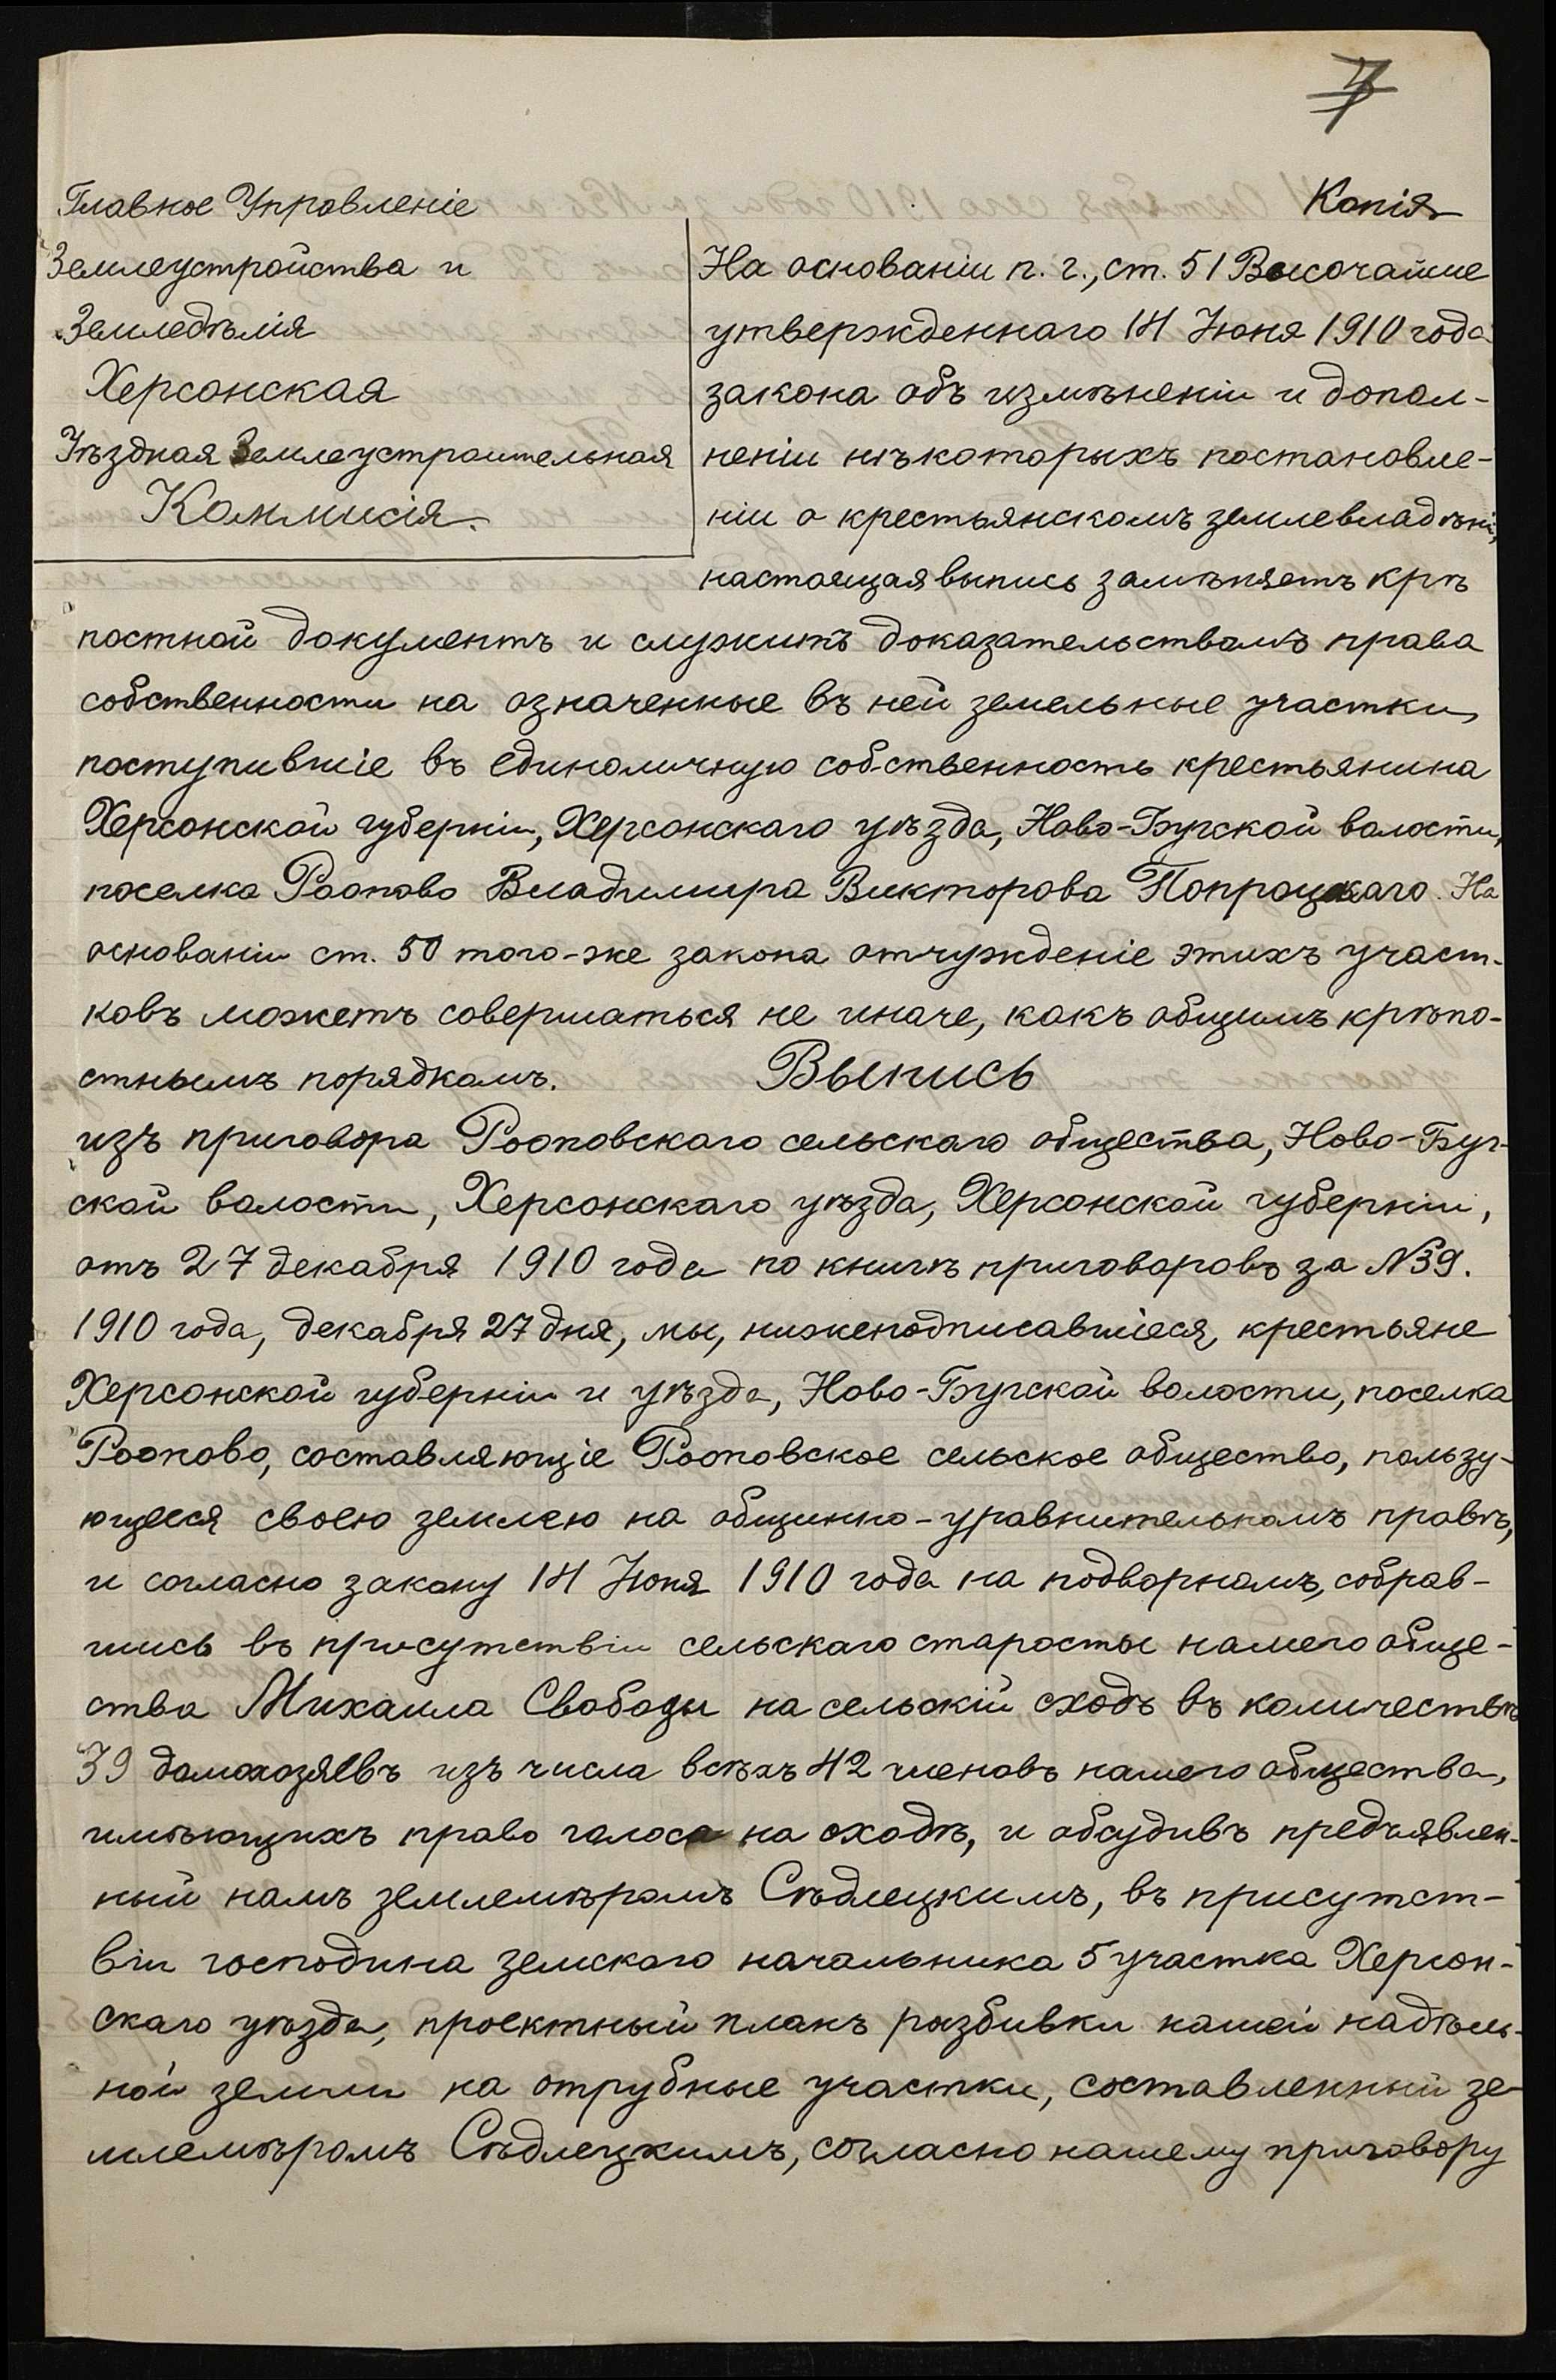 7
Копія
Главное Управленіе
Землеустройства и
Земледѣлія
Херсонская
Уѣздная Землеустроительная
Коммисія.
На основаніи п. г., ст. 51 Высочайше
утвержденнаго 14 Іюня 1910 года
закона объ измѣненіи и допол-
неніи нѣкоторыхъ постановле-
ніи о крестьянскомъ землевладѣніи,
настоящая выпись замѣняетъ крѣ
постной документъ и служитъ доказательствомъ права
собственности на означенные въ ней земельные участки,
поступившіе въ единоличную собственность крестьянина
Херсонской губерніи, Херсонскаго уѣзда, Ново-Бугской волости,
поселка Роопово Владимира Викторова Попроцкаго. На
основаніи ст. 50 того-же закона отчужденіе этихъ участ-
ковъ можетъ совершаться не иначе, какъ общимъ крѣпо-
стнымъ порядкомъ. Выпись
изъ приговора Рооповскаго сельскаго общества, Ново-Буг-
ской волости, Херсонскаго уѣзда, Херсонской губерніи,
отъ 27 декабря 1910 года по книгѣ приговоровъ за №39.
1910 года, декабря 27 дня, мы, нижеподписавшіеся, крестьяне
Херсонской губерніи и уѣзда, Ново-Бугской волости, поселка
Роопово, составляющіе Рооповское сельское общество, пользу-
ющееся своею землею на общинно-уравнительномъ правѣ,
и согласно закону 14 Іюня 1910 года на подворномъ, собрав-
шись въ присутствіи сельскаго старосты нашего обще-
ства Михаила Свободы на сельскій сходъ въ количествѣ
39 домохозяевъ изъ числа всѣхъ 42 членовъ нашего общества,
имѣющихъ право голоса на сходѣ, и обсудивъ предъявлен-
ный намъ землемѣромъ Сѣдлецкимъ, въ присутст-
віи господина земскаго начальника 5 участка Херсон-
скаго уѣзда, проектный планъ разбивки нашей надѣль-
ной земли на отрубные участки, составленный зе-
млемѣромъ Сѣдлецкимъ, согласно нашему приговору